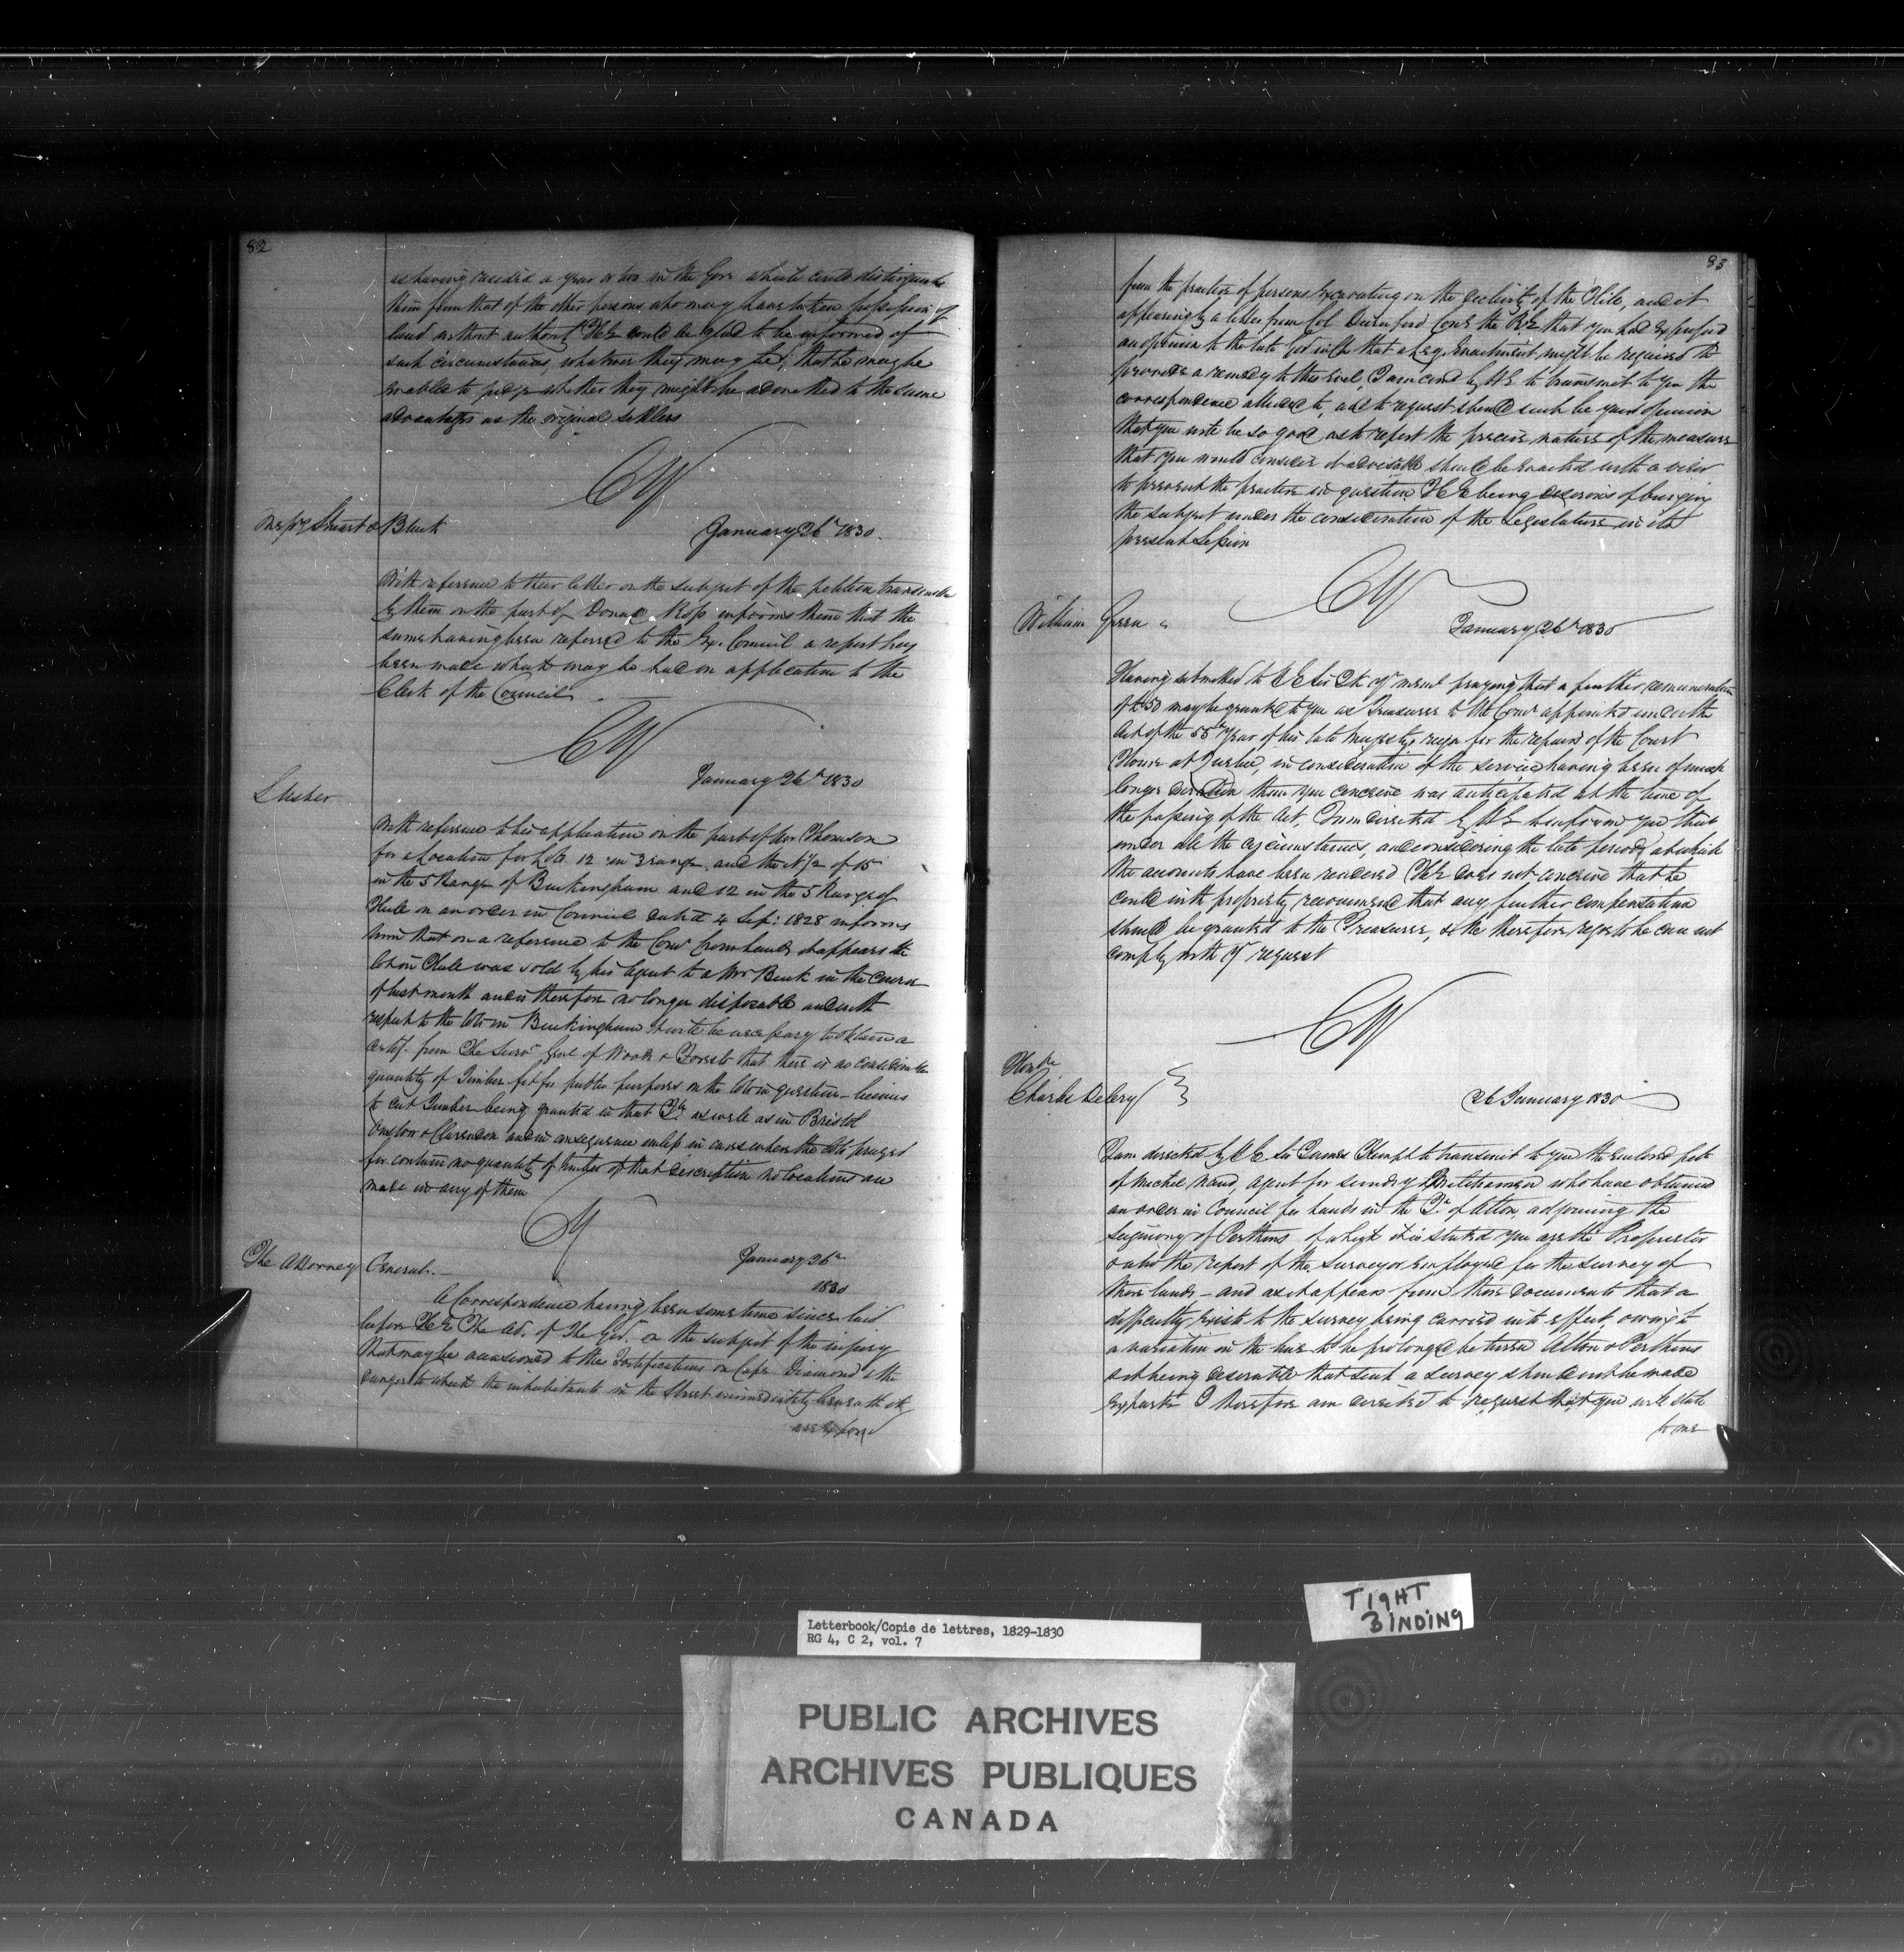 82
as having resided a year or two in the Gore which could distinguish
their from that of the other persons who may have taken possession of
land without authority HE would be glad to be informed of
such circumstances whatever they may be, that he may be
enabled to judge whether they might be admitted to the same
advantages as the original settlers
CY
Messrs Stuart & Black
January 26th 1830.
With reference to their letter on the subject of the petition transmitted
by them on the part of Donald Ross informs them that the
same having been referred to the Ex. Council a report has
been made which may be had on application to the
Clerk of the Council.
CY
January 26th 1830
With reference to his application on the part of Mr Thomson
for a Location for Lots 12 in 3 range and the N 1/2 of 15
in the 5 Range of Buckingham and 12 in the 5 Range of
Hull on an order in Council dated 4 Sep: 1828 informs
him that on a reference to the Comr Crown lands it appears the
lot in Hull was sold by his Agent to a Mr in the course
of last month and is therefore no longer disposable and with
respect to the lots in Buckingham it will be necessary to obtain a
certif. from The Survr Genl of Woods & Forests that there is no considerable
quantity of Timber fit for public purposes on the lots in question - licenses
to cut Timber being granted in that Tp as well as in Bristol
Onslow & Clarendon and in consequence unless in cases where the lots prayed
for contain no quantity of timber of that description no locations are
made in any of them
CY
The Attorney General.
January 26th
1830
A Correspondence having been some time since laid
before HE The Ad. of The Govt. on the subject of the injury
that may be occasioned to the Fortifications on Cape Diamond & the
danger to which the inhabitants in the Street immediately beneath it
are expos'd
83
from the practice of persons Excavating on the declivity of the Hill, and it
appearing by a letter from Col Durnford Comg the RE that you had expressed
an opinion to the late Govr in Ch that a Leg. Enactment might be required to
provide a remedy to this evil, I am comd by HE to transmit to you the
correspondence alluded to, and to request should such be your opinion
that you will be so good as to report the precise nature of the measure
that you would consider it advisable should be enacted with a view
to prevent the practice in question HE being desirous of bringing
the subject under the consideration of the Legislature in its
present Session
CY
William Green
January 26th 1830
Having submitted to HE Sir JK yr meml praying that a further remuneration
of £50 may be granted to you as Treasurer to the Comrs appointed under the
Act of the 55th Year of his late Majesty's reign for the repairs of the Court
House at Quebec, in consideration of the service having been of much
longer duration than you conceive was anticipated at the time of
the passing of the Act, I am directed by HE to inform you that
under all the circumstances, and considering the late period at which
the accounts have been rendered HE does not conceive that he
could with propriety recommend that any further compensation
should be granted to the Treasurer, & he therefore regrets he can not
comply with yr request
CY
Honble
Charles Delery
26 January 1830
I am directed by HE Sir James Kempt to transmit to you the enclosed petn
of Michel agent for sundry Militiamen who have obtained
an order in Council for lands in the Tp of Acton, adjoining the
Seigniory of of which it is stated you are the Proprietor
& also the report of the Surveyor employed for the survey of
these lands - and as it appears from these documents that a
difficulty exists to the survey being carried into effect, owing to
a variation in the line to be prolonged between Acton &
& it being desirable that such a survey should not be made
Exparte I therefore am directed to request that you will state
to me
TIGHT
BINDING
Letterbook/Copie de lettres, 1829-1830
RG 4, C 2, vol. 7
PUBLIC ARCHIVES
ARCHIVES PUBLIQUES
CANADA